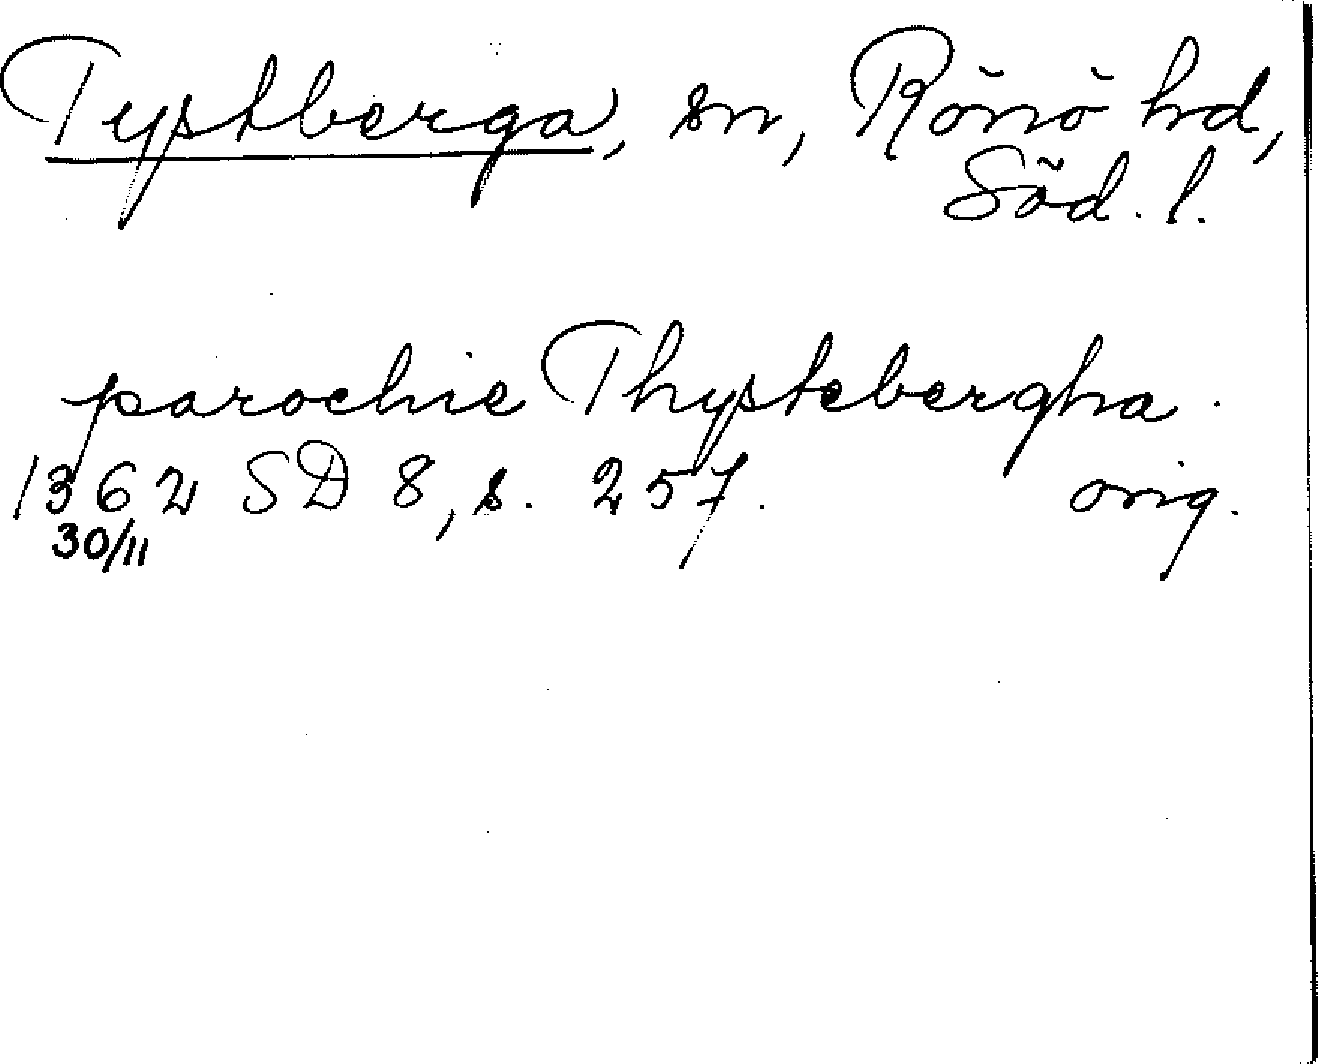 Tystberga, sn, Rönö hd,
Söd. l.
parochie Thystebergha.
1362 SD 8, s. 257. orig.
30/11